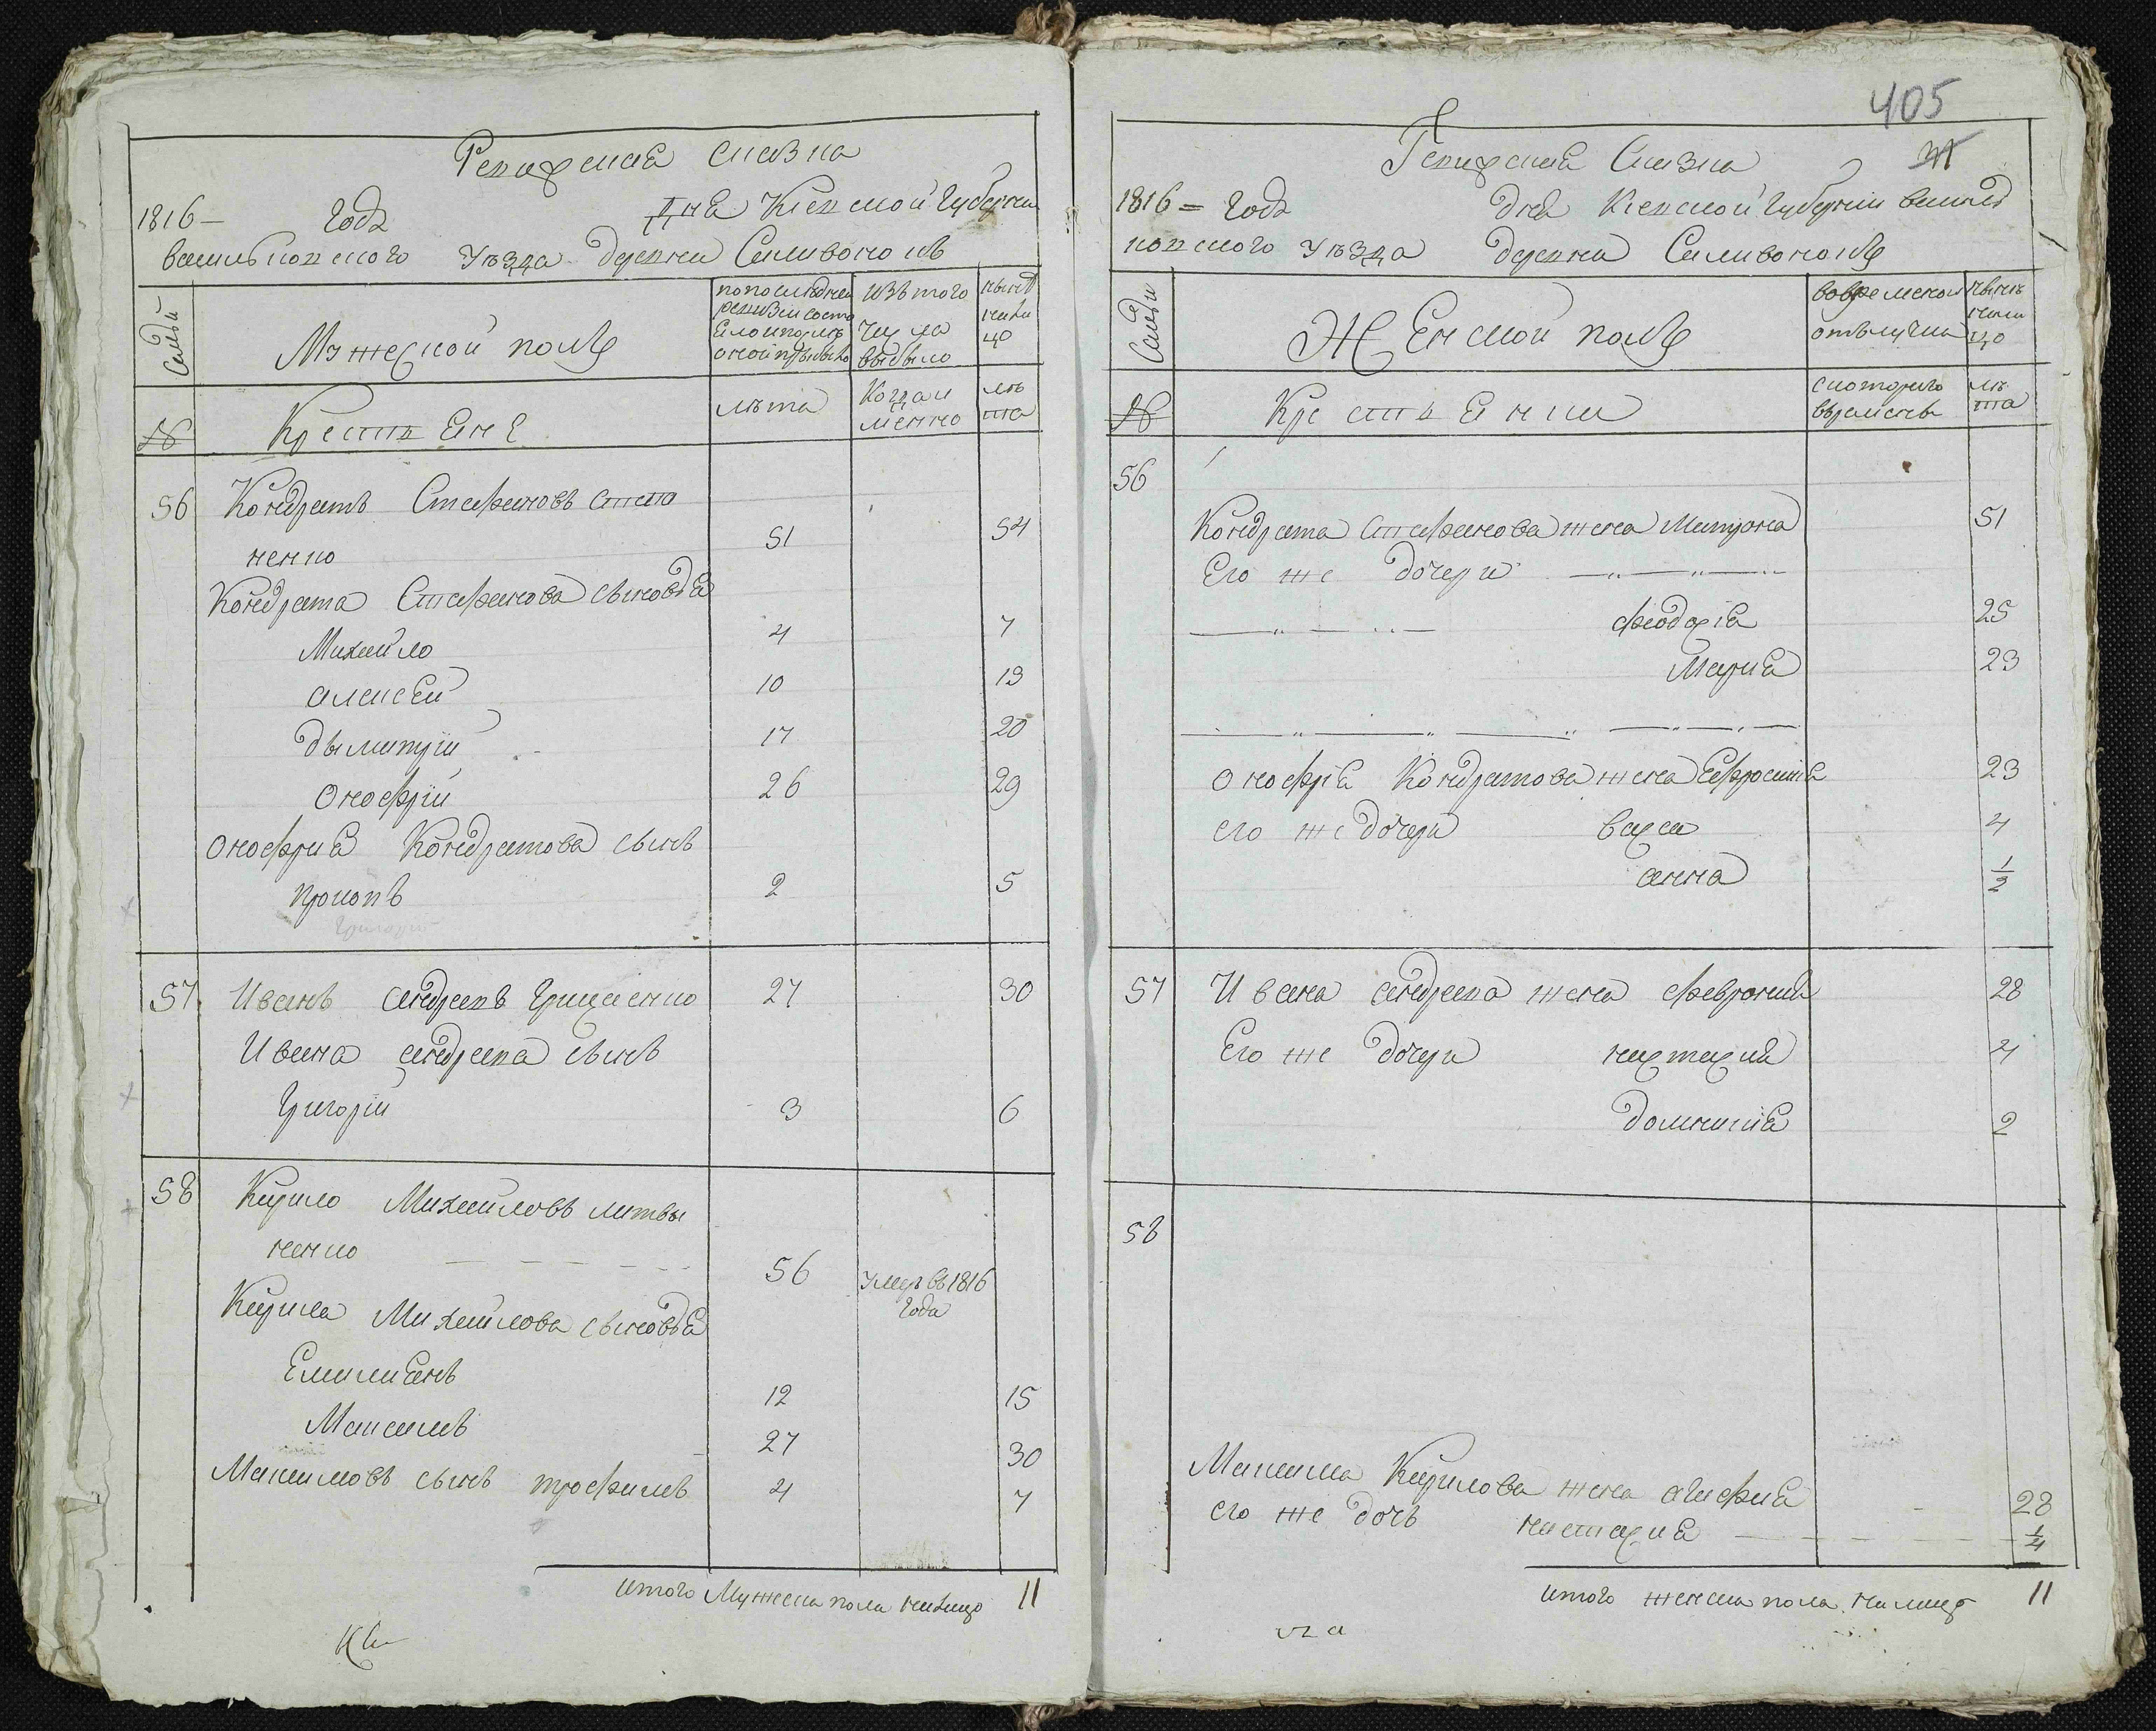 Ревизская сказка
1816 – Года Дня Киевской Губернии
васильковского уезда деревни Саливонокъ
Семьи
Мужеской полъ
по последней ревизии состояло и после оной прибыло
изъ того числа выбыло
ныне налицо
№
Крестьяне
лета
Когда именно
лета
56 Кондратъ Стефановъ Степа
ненко 51 54
Кондрата Стефанова сыновья
Михайло 4 7
алексей 10 13
дымитрий 17 20
Онофрий 26 29
Онофрия Кондратова сынъ
прокопъ 2 5
57 Иванъ андреевъ Грицаенко 27 30
Ивана андреева сынъ
Григорий 3 6
58 Кирило Михайловъ литви
ненко 56 умре въ 1816
Года
Кирила Михайлова сыновья
Емилиянъ 12 15
Максимъ 27 30
Максимовъ сынъ трофимъ 4 7
итого Мужеска пола налицо 11
405
Ревизская Сказка
1816 = Года дня Киевской Губернии василь
ковского уезда деревни Саливонокъ
Семьи
Женской полъ
во временной отлучки
ныне налицо
№
Крестьянки
с которого времени
лета
56
Кондрата Стефанова жена Матрона 51
Его же дочери
феодосия 25
Мария 23
Онофрия Кондратова жена Ефросиния 23
его же дочери васса 4
анна 1/2
57 Ивана андреева жена феврония 28
Его же дочери настасия 4
домникия 2
58
Максима Кирилова жена агафия 28
его же дочь настасия 1/4
итого женска пола налицо 11